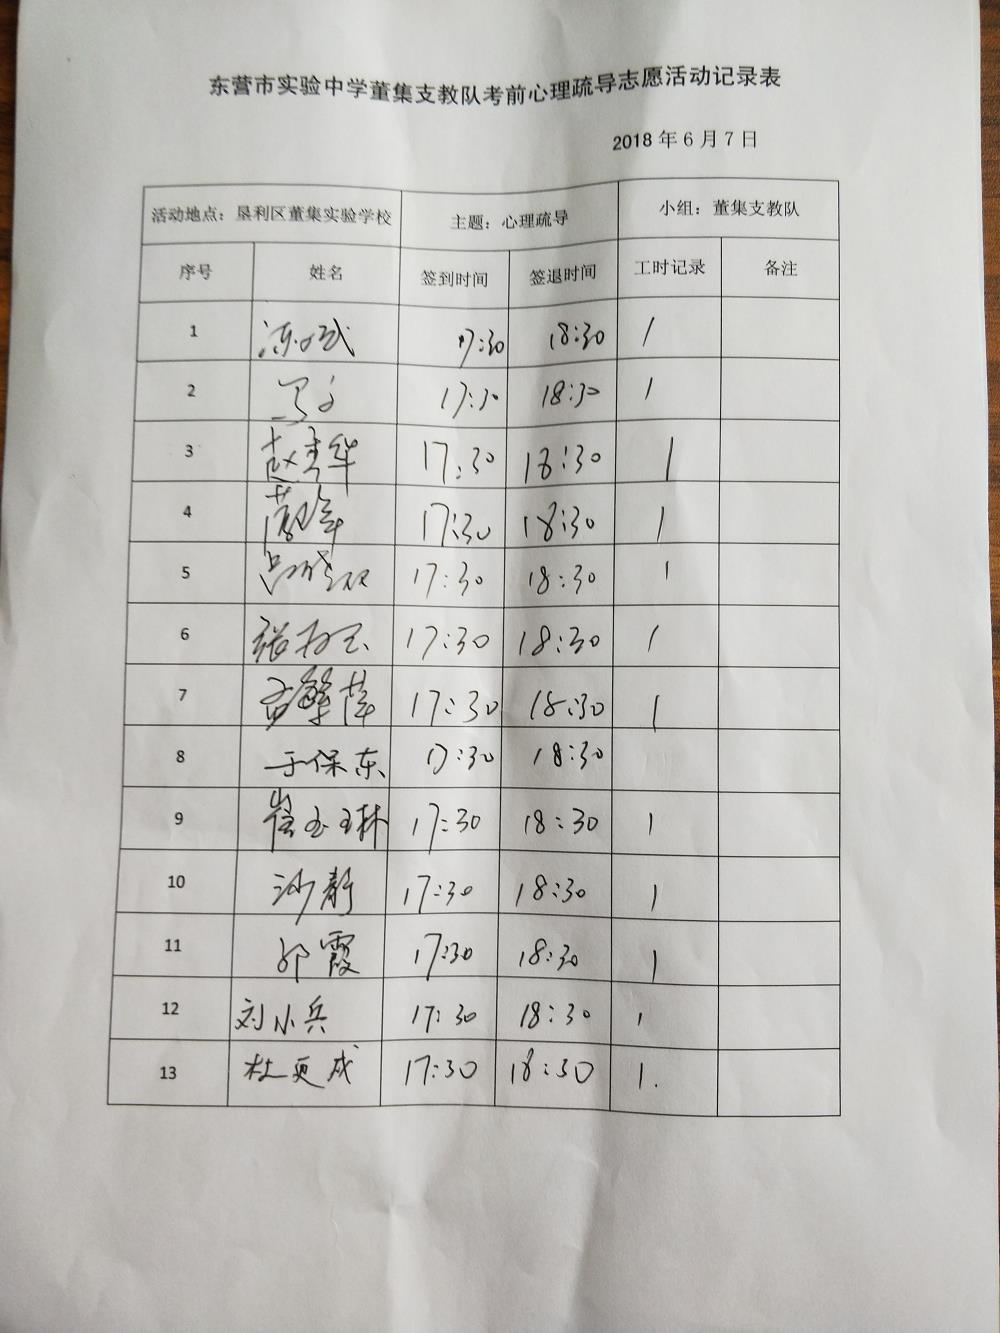 东营市实验中学董集支教队考前心理疏导志愿活动记录表
2018 年 6 月 7 日
活动地点：垦利区董集实验学校 主题：心理疏导 小组：董集支教队
序号 姓名 签到时间 签退时间 工时记录 备注
1 17:30 18:30 1
2 17:30 18:30 1
3 赵秀华 17:30 18:30 1
4 17:30 18:30 1
5 17:30 18:30 1
6 张 17:30 18:30 1
7 17:30 18:30 1
8 于保东 17:30 18:30
9 崔玉琳 17:30 18:30 1
10 沙静 17:30 18:30 1
11 邓霞 17:30 18:30 1
12 刘小兵 17:30 18:30 1
13 杜更成 17:30 18:30 1.